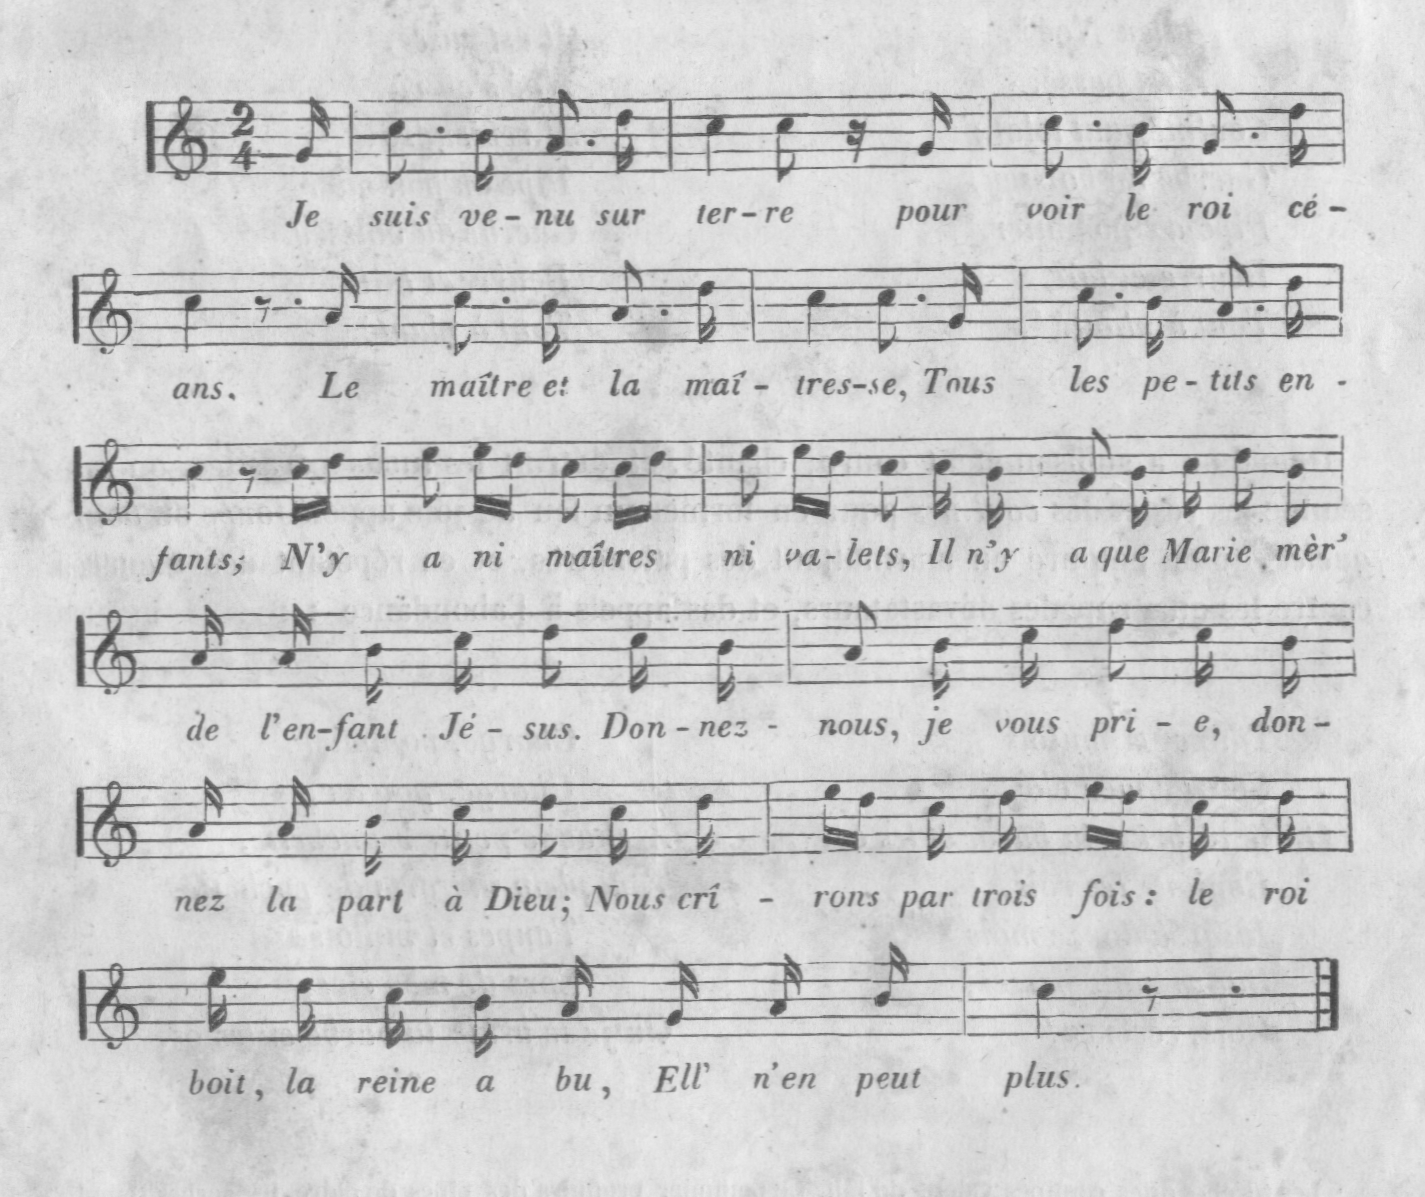 2
4
Je suis ve-nu sur ter-re pour voir le roi cé-
ans. Le maître et la maî- tres-se, Tous les pe-tits en-
fants; N'y a ni maîtres ni va-lets, Il n'y a que Marie mèr'
de l'en-fant Jé-sus. Don-nez- nous, je vous pri-e, don-
nez la part à Dieu; Nous crî- rons par trois fois: le roi
boit, la reine a bu, Ell' n'en peut plus.